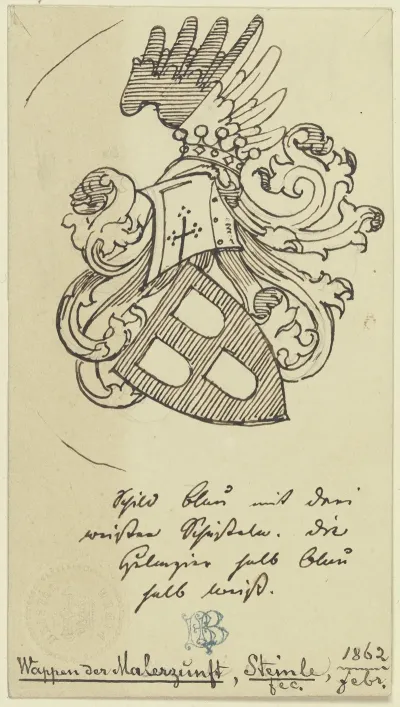 Schild blau mit drei
weißen Schilteln. die
Helmzier halb blau
halb weiß.
Wappen der Malerzunft, Steinle fec., 1862 febr.